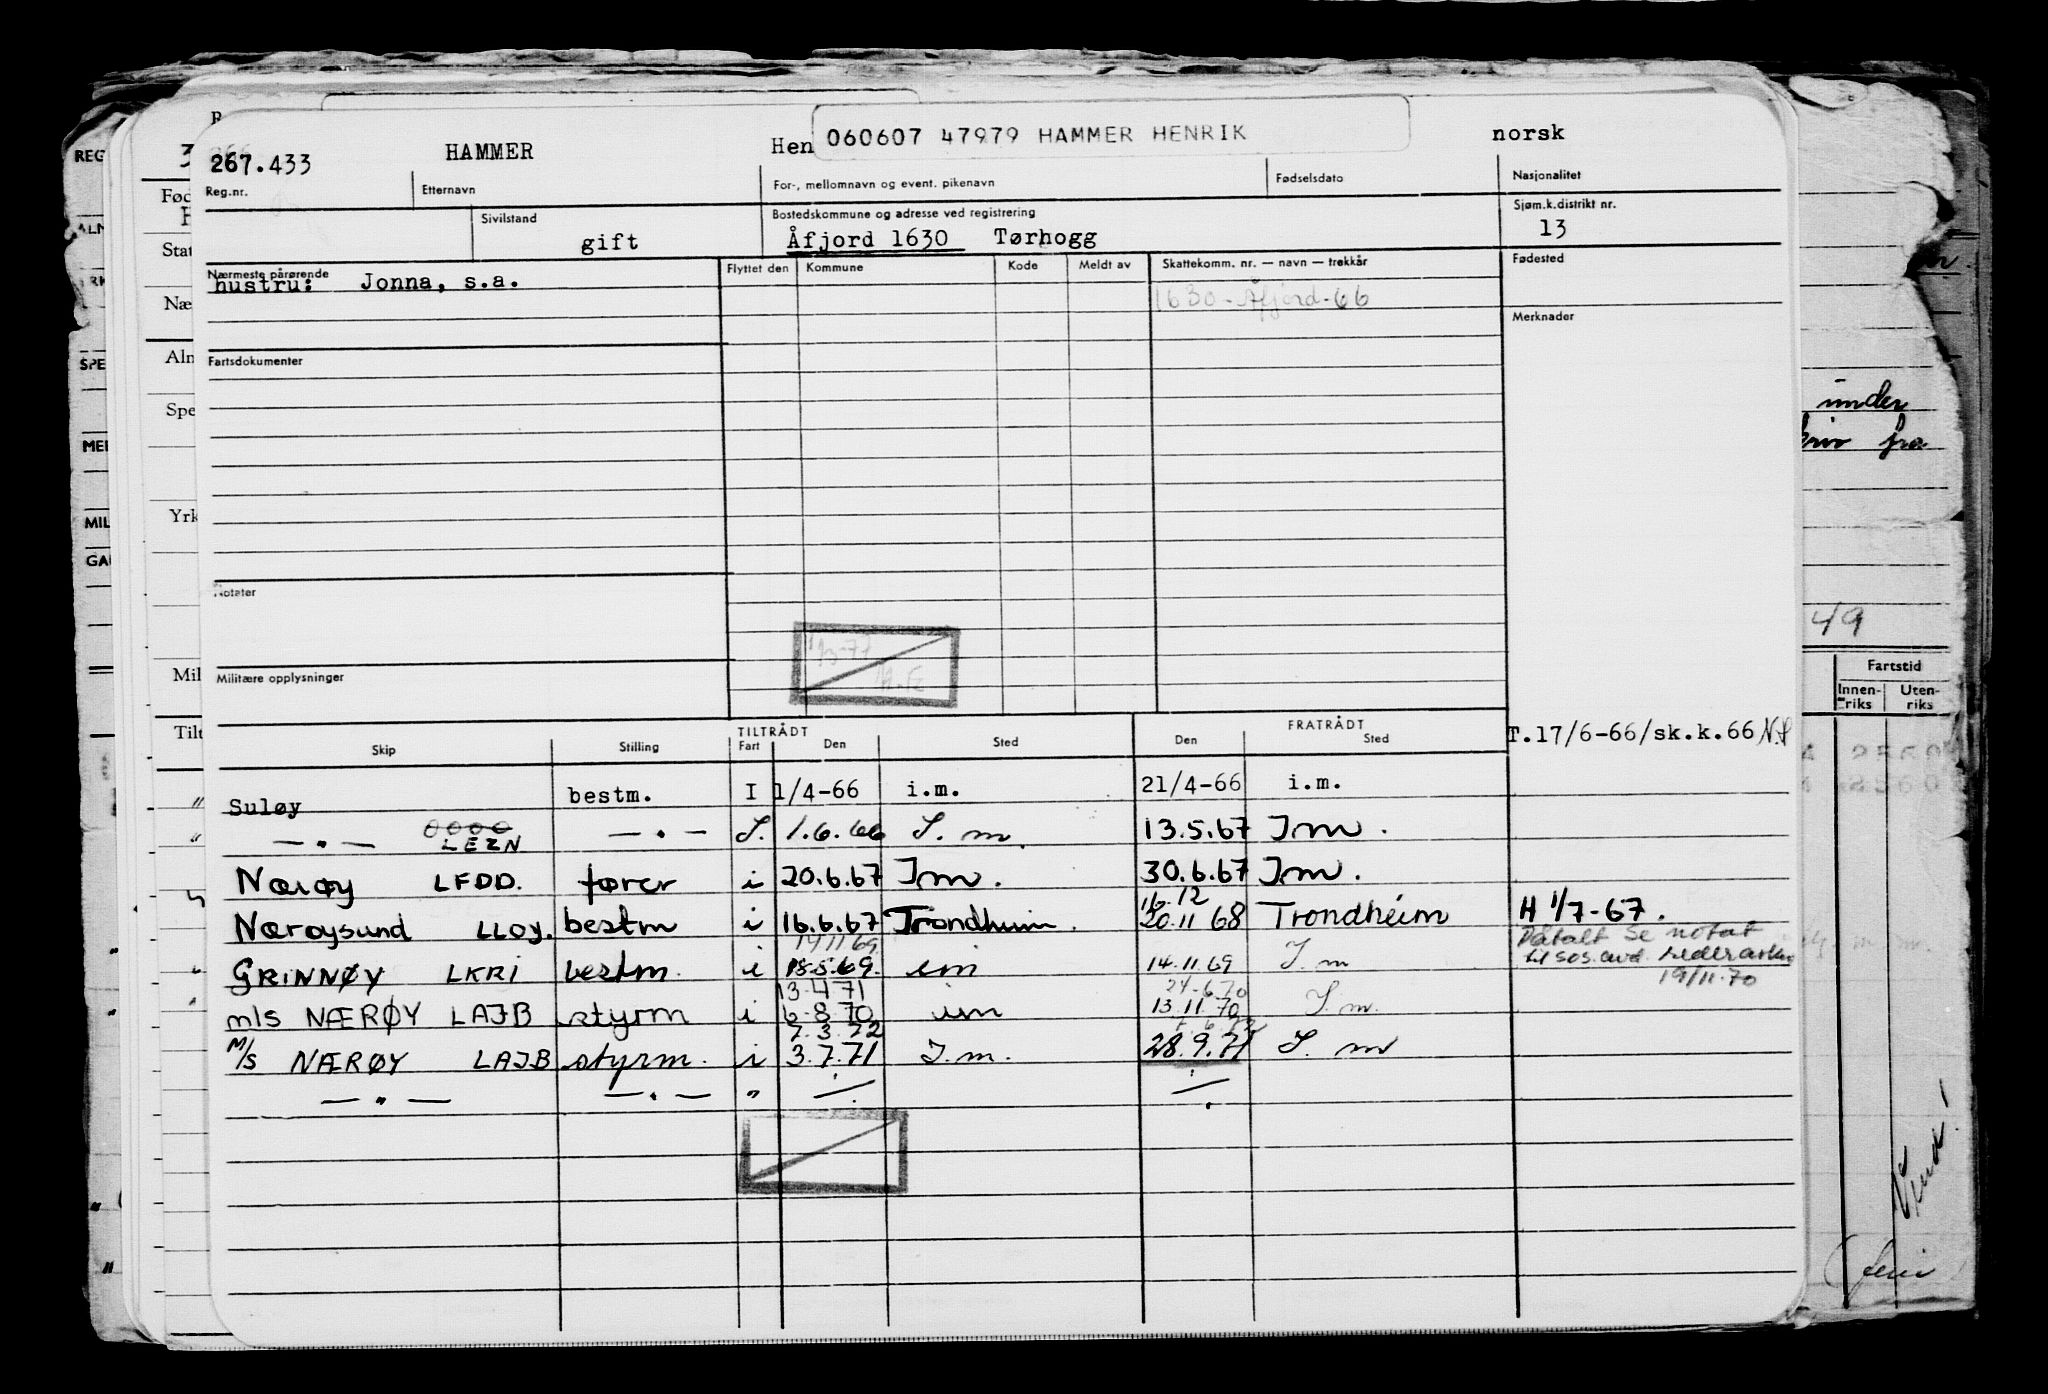 267.433 HAMMER Hen 060607 47979 HAMMER HENRIK norsk
Reg.nr. Etternavn For-, mellomnavn og event. pikenavn Fødselsdato Nasjonalitet
Sivilstand Bostedskommune og adresse ved registrering Sjøm.k.distrikt nr.
gift Åfjord 1630 Tørhogg 13
Nærmeste pårørende Flyttet den Kommune Kode Meldt av Skattekomm. nr. — navn — trekkår Fødested
hustru: Jonna, s.a.
1630 - Åfjord - 66
Merknader
Fartsdokumenter
Notater
Militære opplysninger
TILTRÅDT FRATRÅDT
Skip Stilling Fart Den Sted Den Sted
T.17/6-66/sk.k.66
Suløy bestm. I 1/4-66 i.m. 21/4-66 i.m.
— " — LEZN — " — I. 1.6.66 I. m. 13.5.67 Im.
Nærøy LFDD. fører i 20.6.67 Im. 30.6.67 Im.
16.12
Nærøysund LLOY. bestm i 16.6.67 Trondheim. 20.11 68 Trondheim H 1/7-67.
14 11 69
Påtalt Se notat
GRINNØY LKRI bestm. i 18.5.69. im 14.11.69 I. m
til sos.avd.
19/11.70
13.4 71 24-6 70
m/s NÆRØY LAJB styrm i 6-8 70 im 13.11 70 I. m.
7.3.72
M/s NÆRØY LAJB styrm. i 3.7.71 I. m. 28.9.71 I. m
— " — — " — " ÷ ÷
REG
ALM
SPE
MIL
Fød
Stat
Næ
Aln
Spe
Yrk
Mil
Tilt
under
fra
49
Fartstid
Innen-riks Uten-riks